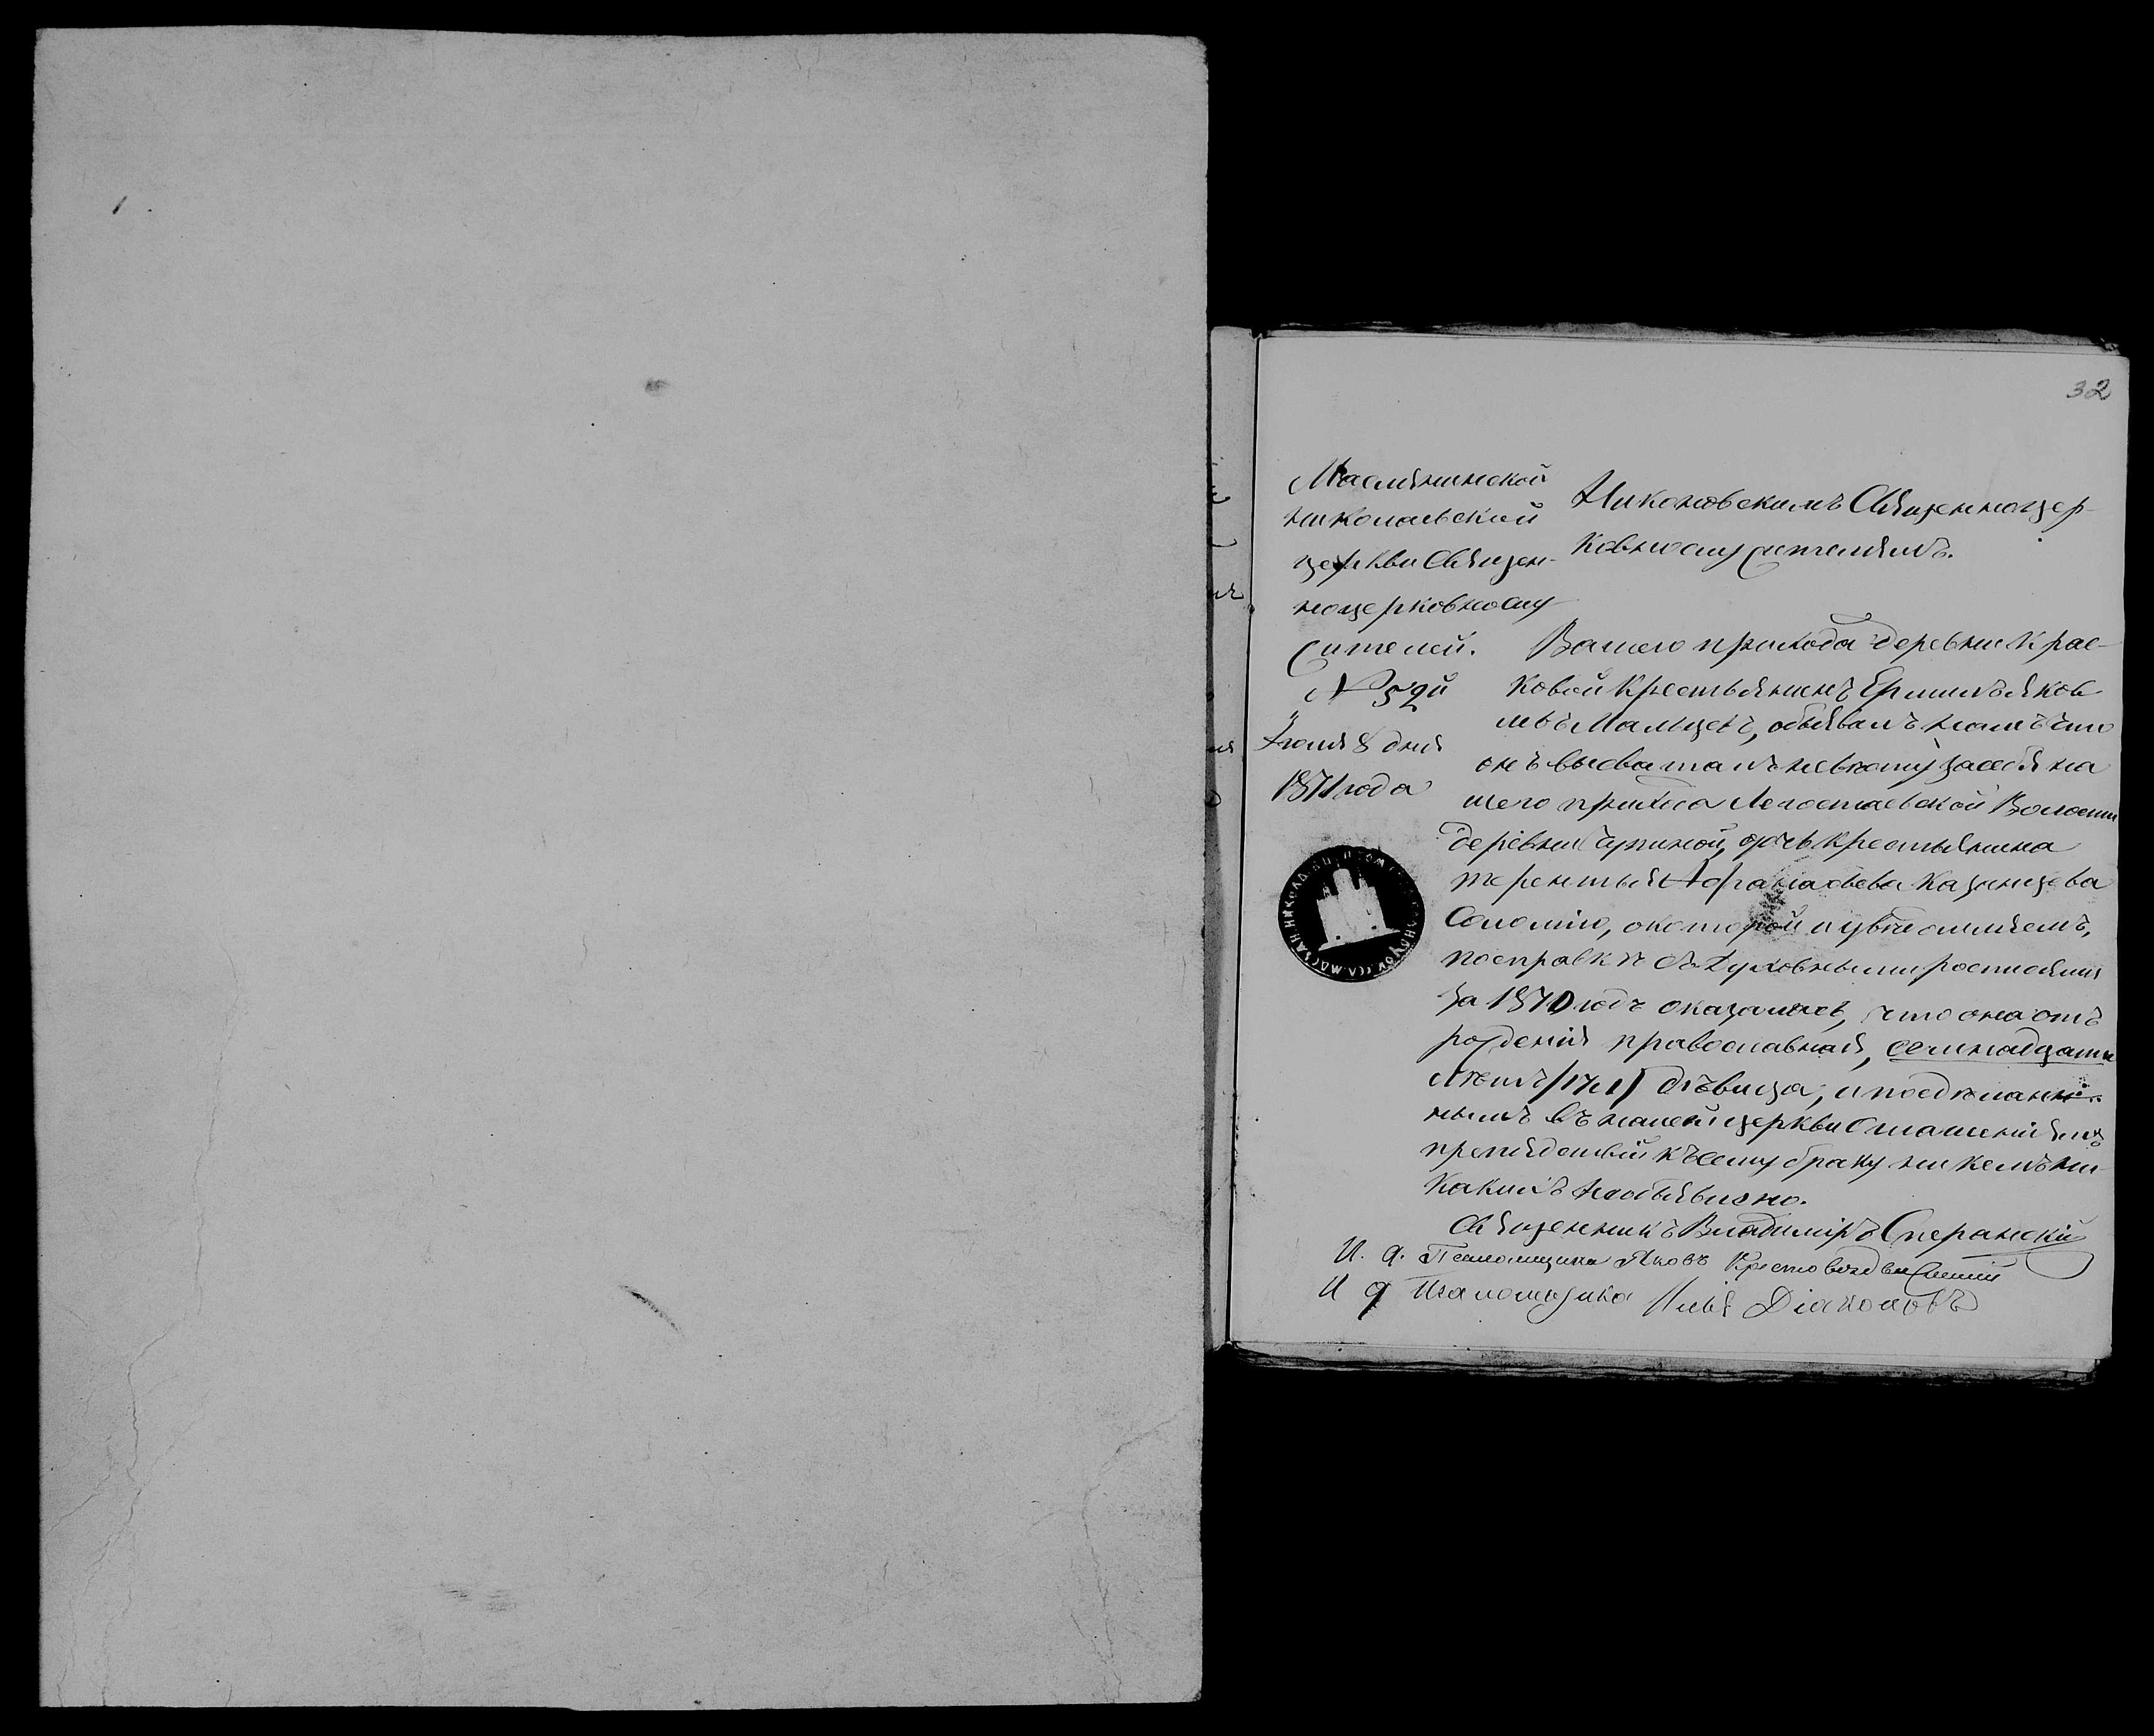 32
Маслянинской
Николаевской
церкви Священ-
ноцерковнослу
жителей.
№ 52й
Июня 8 дня
1871 года
Никоновскимъ Священноцер-
ковнослужителямъ.
Вашего прихода деревни Крас-
ковой Крестьянинъ Ермилъ Яков
левъ Мальцевъ, объявилъ намъ что
онъ высваталъ невѣсту за себя на
шего прихода Легостаевской Волости
деревни Чупиной, дочь Крестьянина
Терентья Афанасьева Казанцева
Соломію, о которой и увѣдомляемъ,
по справкѣ съ Духовными росписями
за 1870 годъ оказалось, что она отъ
рожденія православная, семнадцати
лѣтъ /17 л/ дѣвица, и по сдѣлан
нымъ въ нашей церкви оглашеніямъ
препядствій къ сему браку ни кемъ ни
какихъ необъявлено.
Священникъ Владиміръ Сперанскій
И. д. Псаломщика Яковъ Крестовоздвиженскій
И д Псаломщика Илья Діаконовъ